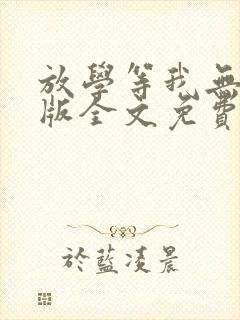 放學等我無
版全文免費
於藍凌晨